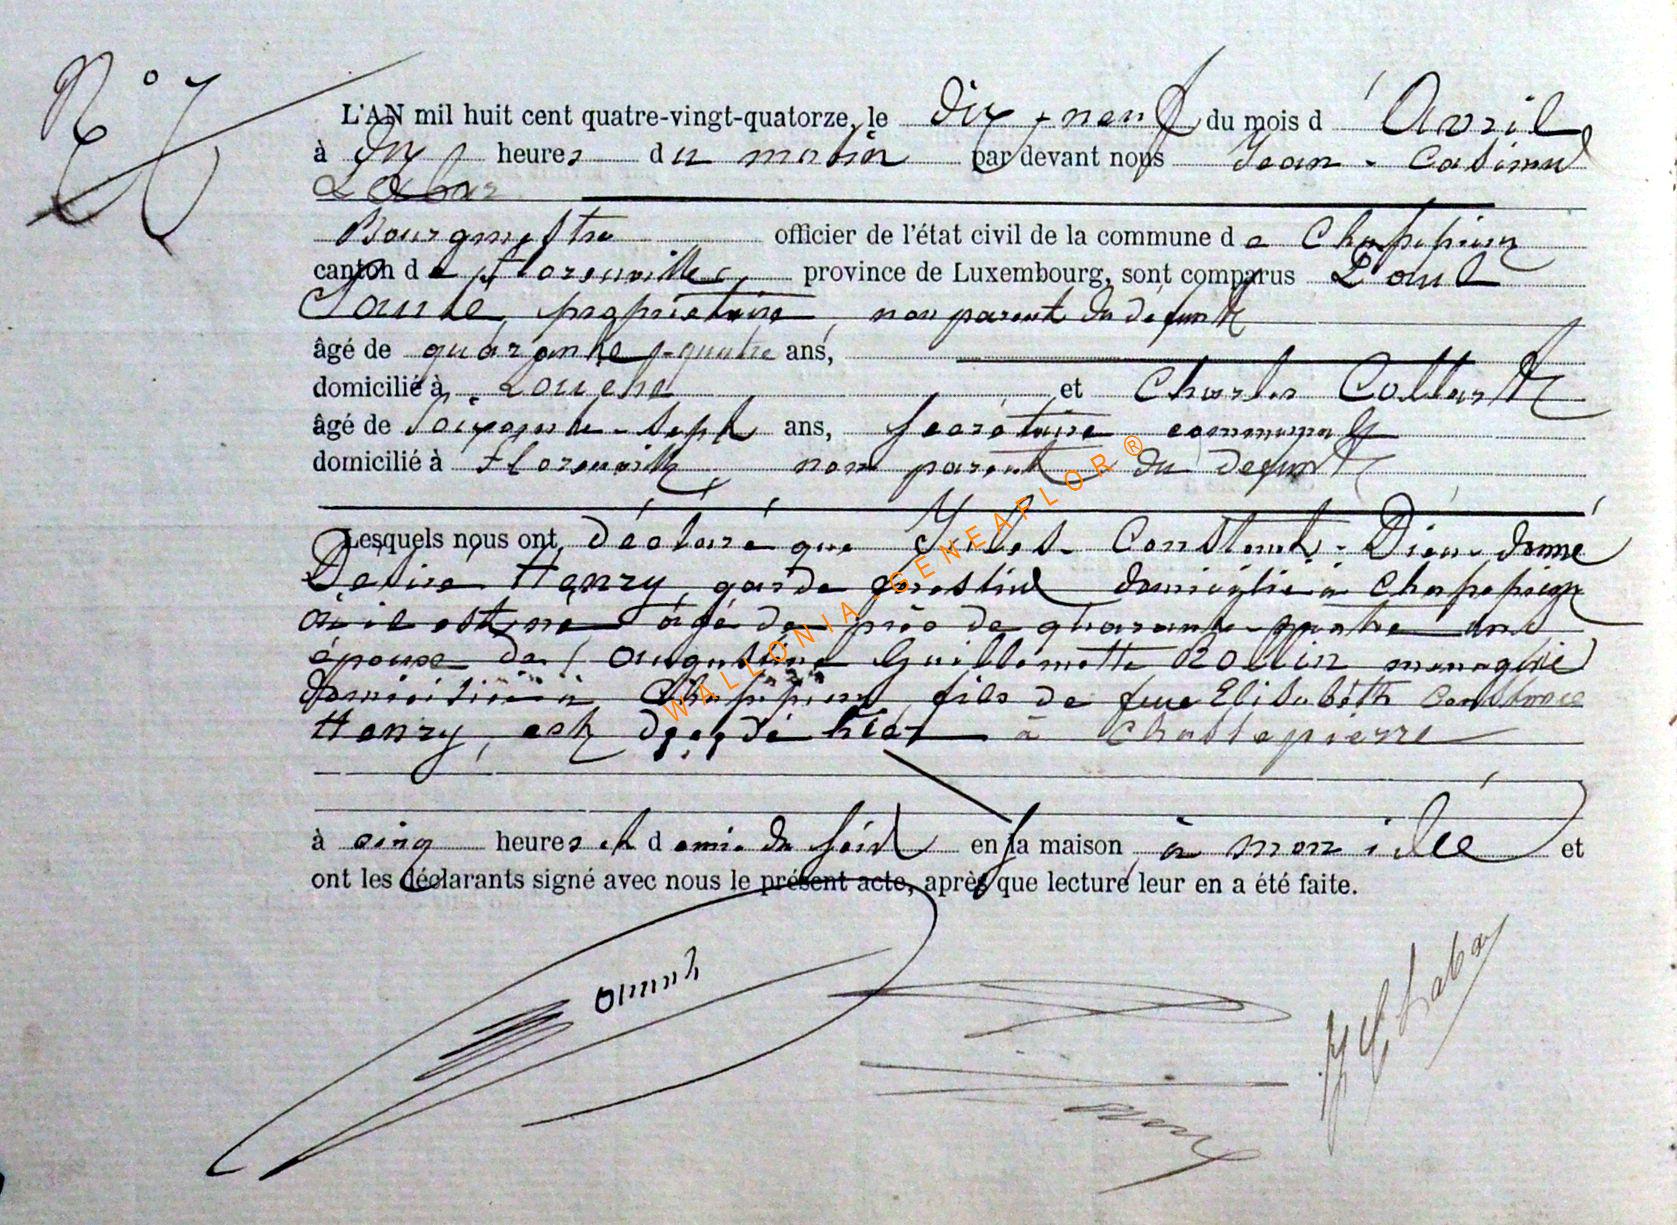 N° 7
L'AN mil huit cent quatre-vingt-quatorze, le Dix-neuf du mois d'Avril
à dix heures du matin par devant nous Jean-Casimir
Labar
Bourgmestre officier de l'état civil de la commune de Chassepierre
canton de Florenville, province de Luxembourg, sont comparus Paul
propriétaire, non parent du defunt
âgé de quarante-quatre ans,
domicilié à et Charles Collard
âgé de Soixante-sept ans, secrétaire communal
domicilié à Florenville, non parent du defunt
Lesquels nous ont déclaré que Jules-Constant-Dieu-donné
Desiré Henry, garde forestier domicilié à Chassepierre
où il est né âgé de près de quarante-quatre ans
époux de Augustine Guillemette Rollin menagère
domiciliée à Chassepierre, fils de feue Elisabeth Constance
Henry, est décédé hier à Chassepierre
à cinq heures et demie du soir en sa maison, et
ont les déclarants signé avec nous le présent acte, après que lecture leur en a été faite.
WALLONIA-GENEAFLOR®